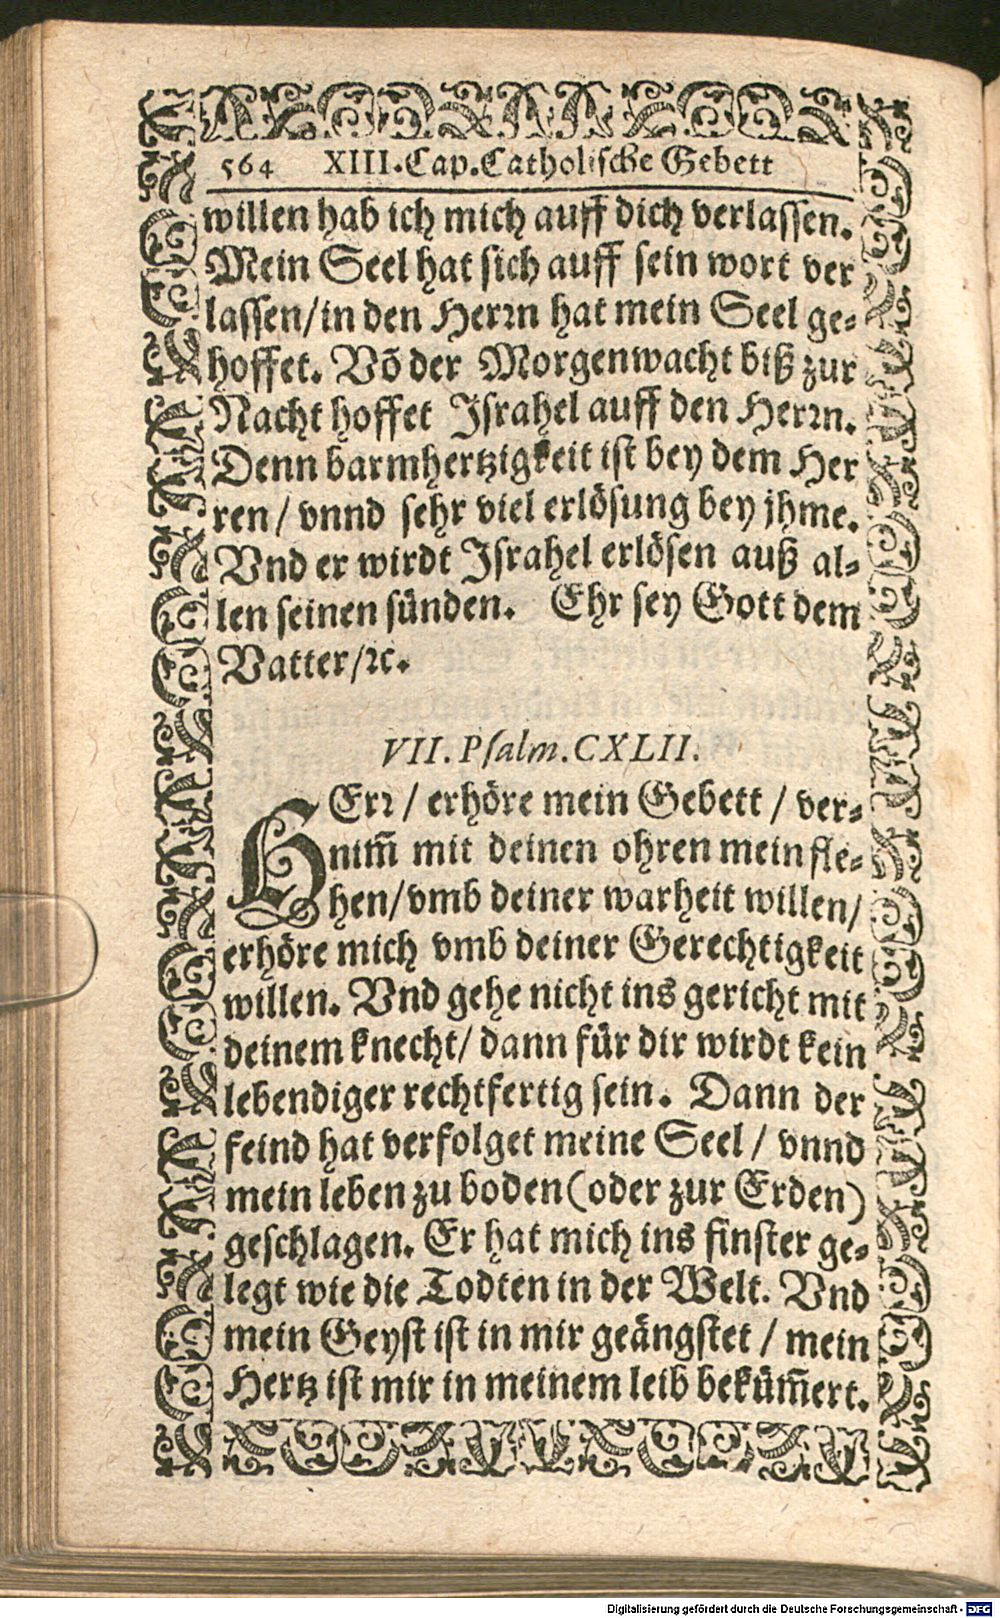 564 XIII.Cap.Catholische Gebett
willen hab ich mich auff dich verlassen.
Mein Seel hat sich auff sein wort ver
lassen/in den Herrn hat mein Seel ge-
hoffet. Võ der Morgenwacht biß zur
Nacht hoffet Israhel auff den Herrn.
Denn barmhertzigkeit ist bey dem Her
ren/ vnnd sehr viel erlösung bey jhme.
Vnd er wirdt Israhel erlösen auß al-
len seinen sünden. Ehr sey Gott dem
Vatter/ꝛc.
VII. Psalm. CXLII.
HErr/ erhöre mein Gebett/ ver-
nim̃ mit deinen ohren mein fle-
hen/vmb deiner warheit willen/
erhöre mich vmb deiner Gerechtigkeit
willen. Vnd gehe nicht ins gericht mit
deinem knecht/ dann für dir wirdt kein
lebendiger rechtfertig sein. Dann der
feind hat verfolget meine Seel/ vnnd
mein leben zu boden (oder zur Erden)
geschlagen. Er hat mich ins finster ge-
legt wie die Todten in der Welt. Vnd
mein Geyst ist in mir geängstet/ mein
Hertz ist mir in meinem leib beküm̃ert.
Digitalisierung gefördert durch die Deutsche Forschungsgemeinschaft - DFG